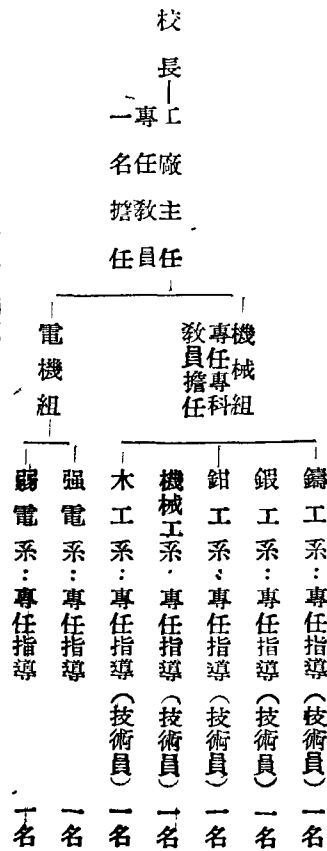 校長—工廠主任
專任教員
一名擔任
機械組
專任專科
教員擔任
鑄工系：專任指導（技術員）一名
鍛工系：專任指導（技術員）一名
鉗工系：專任指導（技術員）一名
機械工系：專任指導（技術員）一名
木工系：專任指導（技術員）一名
電機組
强電系：專任指導 一名
弱電系：專任指導 一名